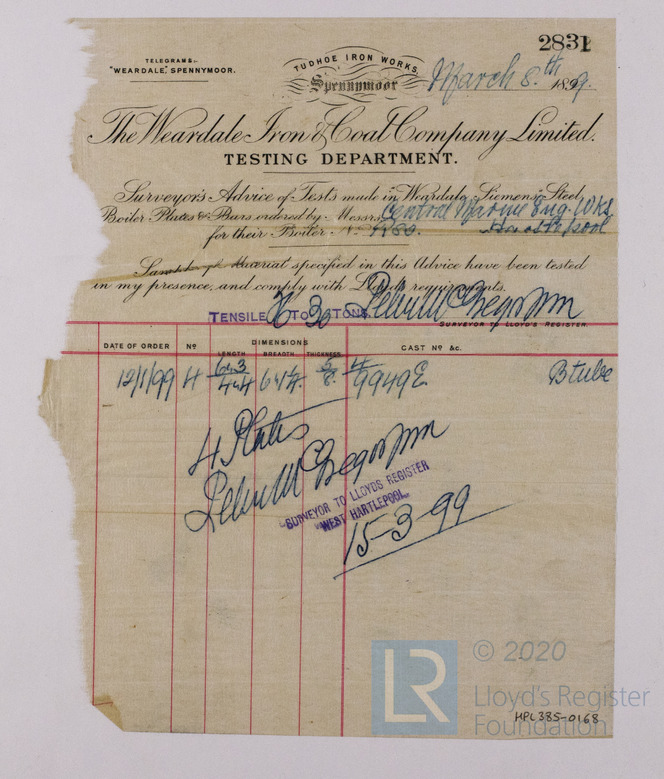 2831
TELEGRAMS:-
"WEARDALE", SPENNYMOOR.
TUDHOE IRON WORKS,
Spennymoor
March 8th 1899.
The Weardale Iron & Coal Company Limited.
TESTING DEPARTMENT.
Surveyor's Advice of Tests made in Weardale Siemens Steel
Boiler Plates & Bars ordered by Messrs Central Marine Eng. Wks
for their Boiler No
Material specified in this Advice have been tested
in my presence, and comply with Lloyd's requirements.
TENSILE 26 TO 30 TONS.
SURVEYOR TO LLOYD'S REGISTER.
DATE OF ORDER No DIMENSIONS CAST No &c.
LENGTH BREADTH THICKNESS
12/1/99 4 5/8 4/9949E B tube
4 Plates
SURVEYOR TO LLOYDS REGISTER
WEST HARTLEPOOL
15-3-99
LR
© 2020
Lloyd's Register
Foundation
HPL385-0168